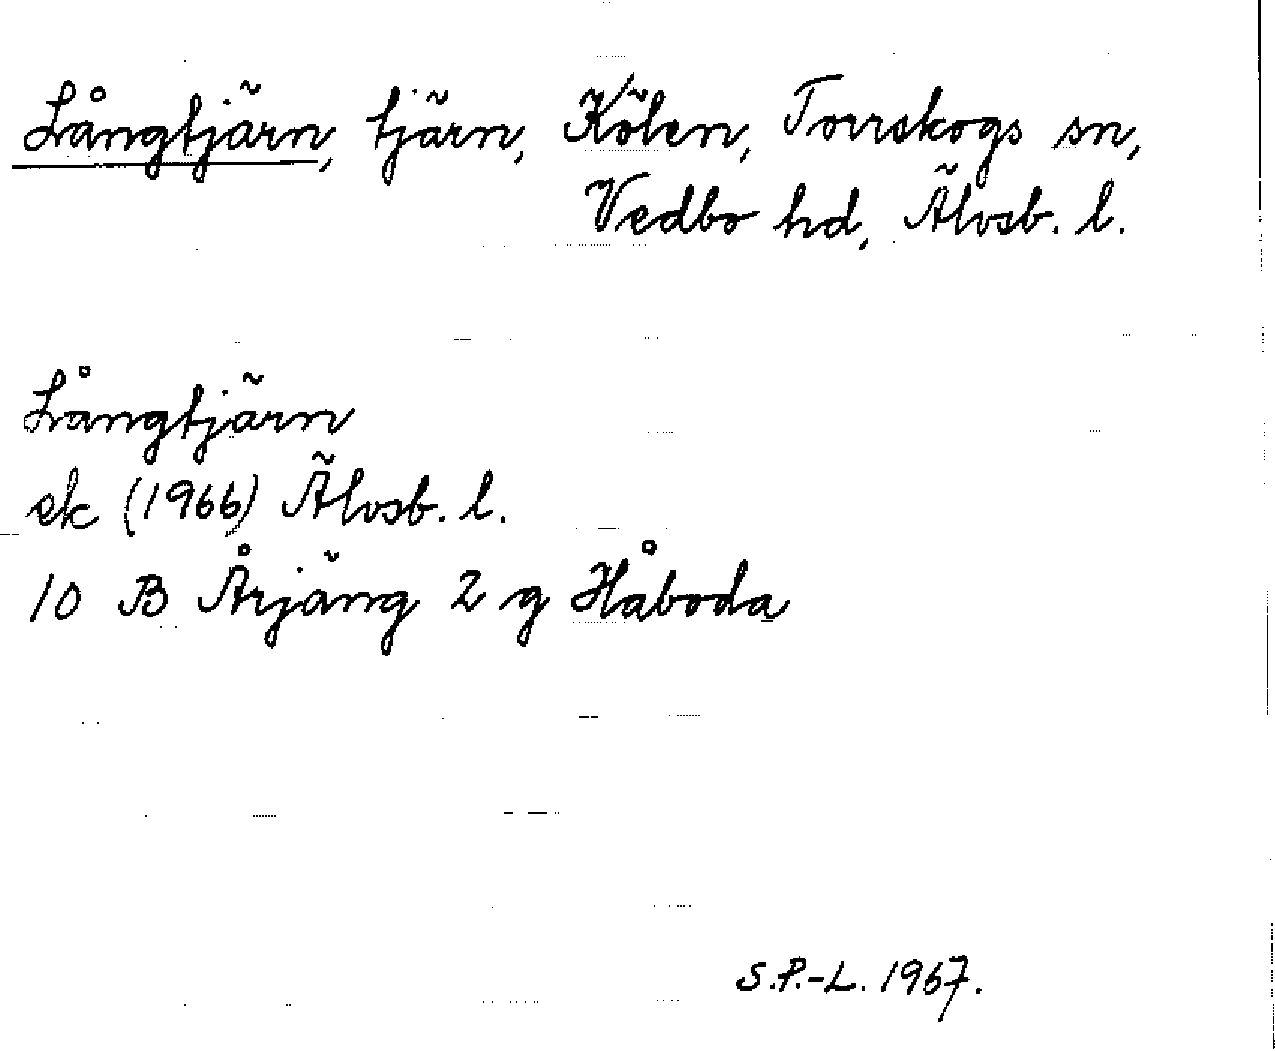 Långtjärn, tjärn, Kölen, Torrskogs sn,
Vedbo hd, Älvsb. l.
Långtjärn
ek (1966) Älvsb. l.
10 B Årjäng 2 g Håboda
S.P.-L. 1967.